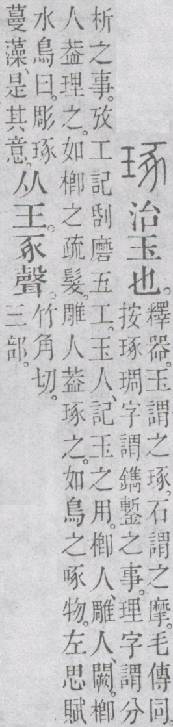 琢治玉也。釋器。玉謂之琢。石謂之摩。毛傳同
按琢琱字謂鐫鏨之事。理字謂分
析之事。攷工記刮磨五工。玉人、記玉之用。楖人、雕人、闕。楖
人葢理之。如楖之疏髮。雕人葢琢之。如鳥之啄物。左思賦
水鳥曰。彫琢
蔓藻。是其意。从王。豖聲。竹角切。
三部。